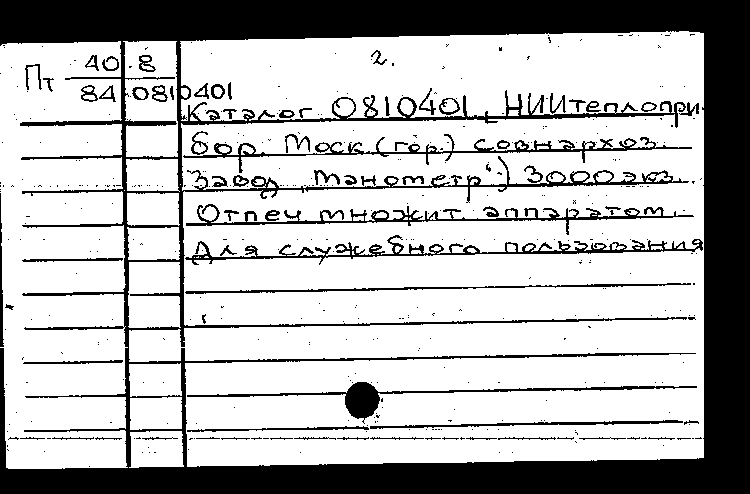 2.
Пт 40.8
84 0810401
Каталог 0810401 „НИИТеплопри-
бор. Моск. (гор.) совнархоз.
Завод „Манометр“.) 3000 экз.
Отпеч. множит. аппаратом.
Для служебного пользования